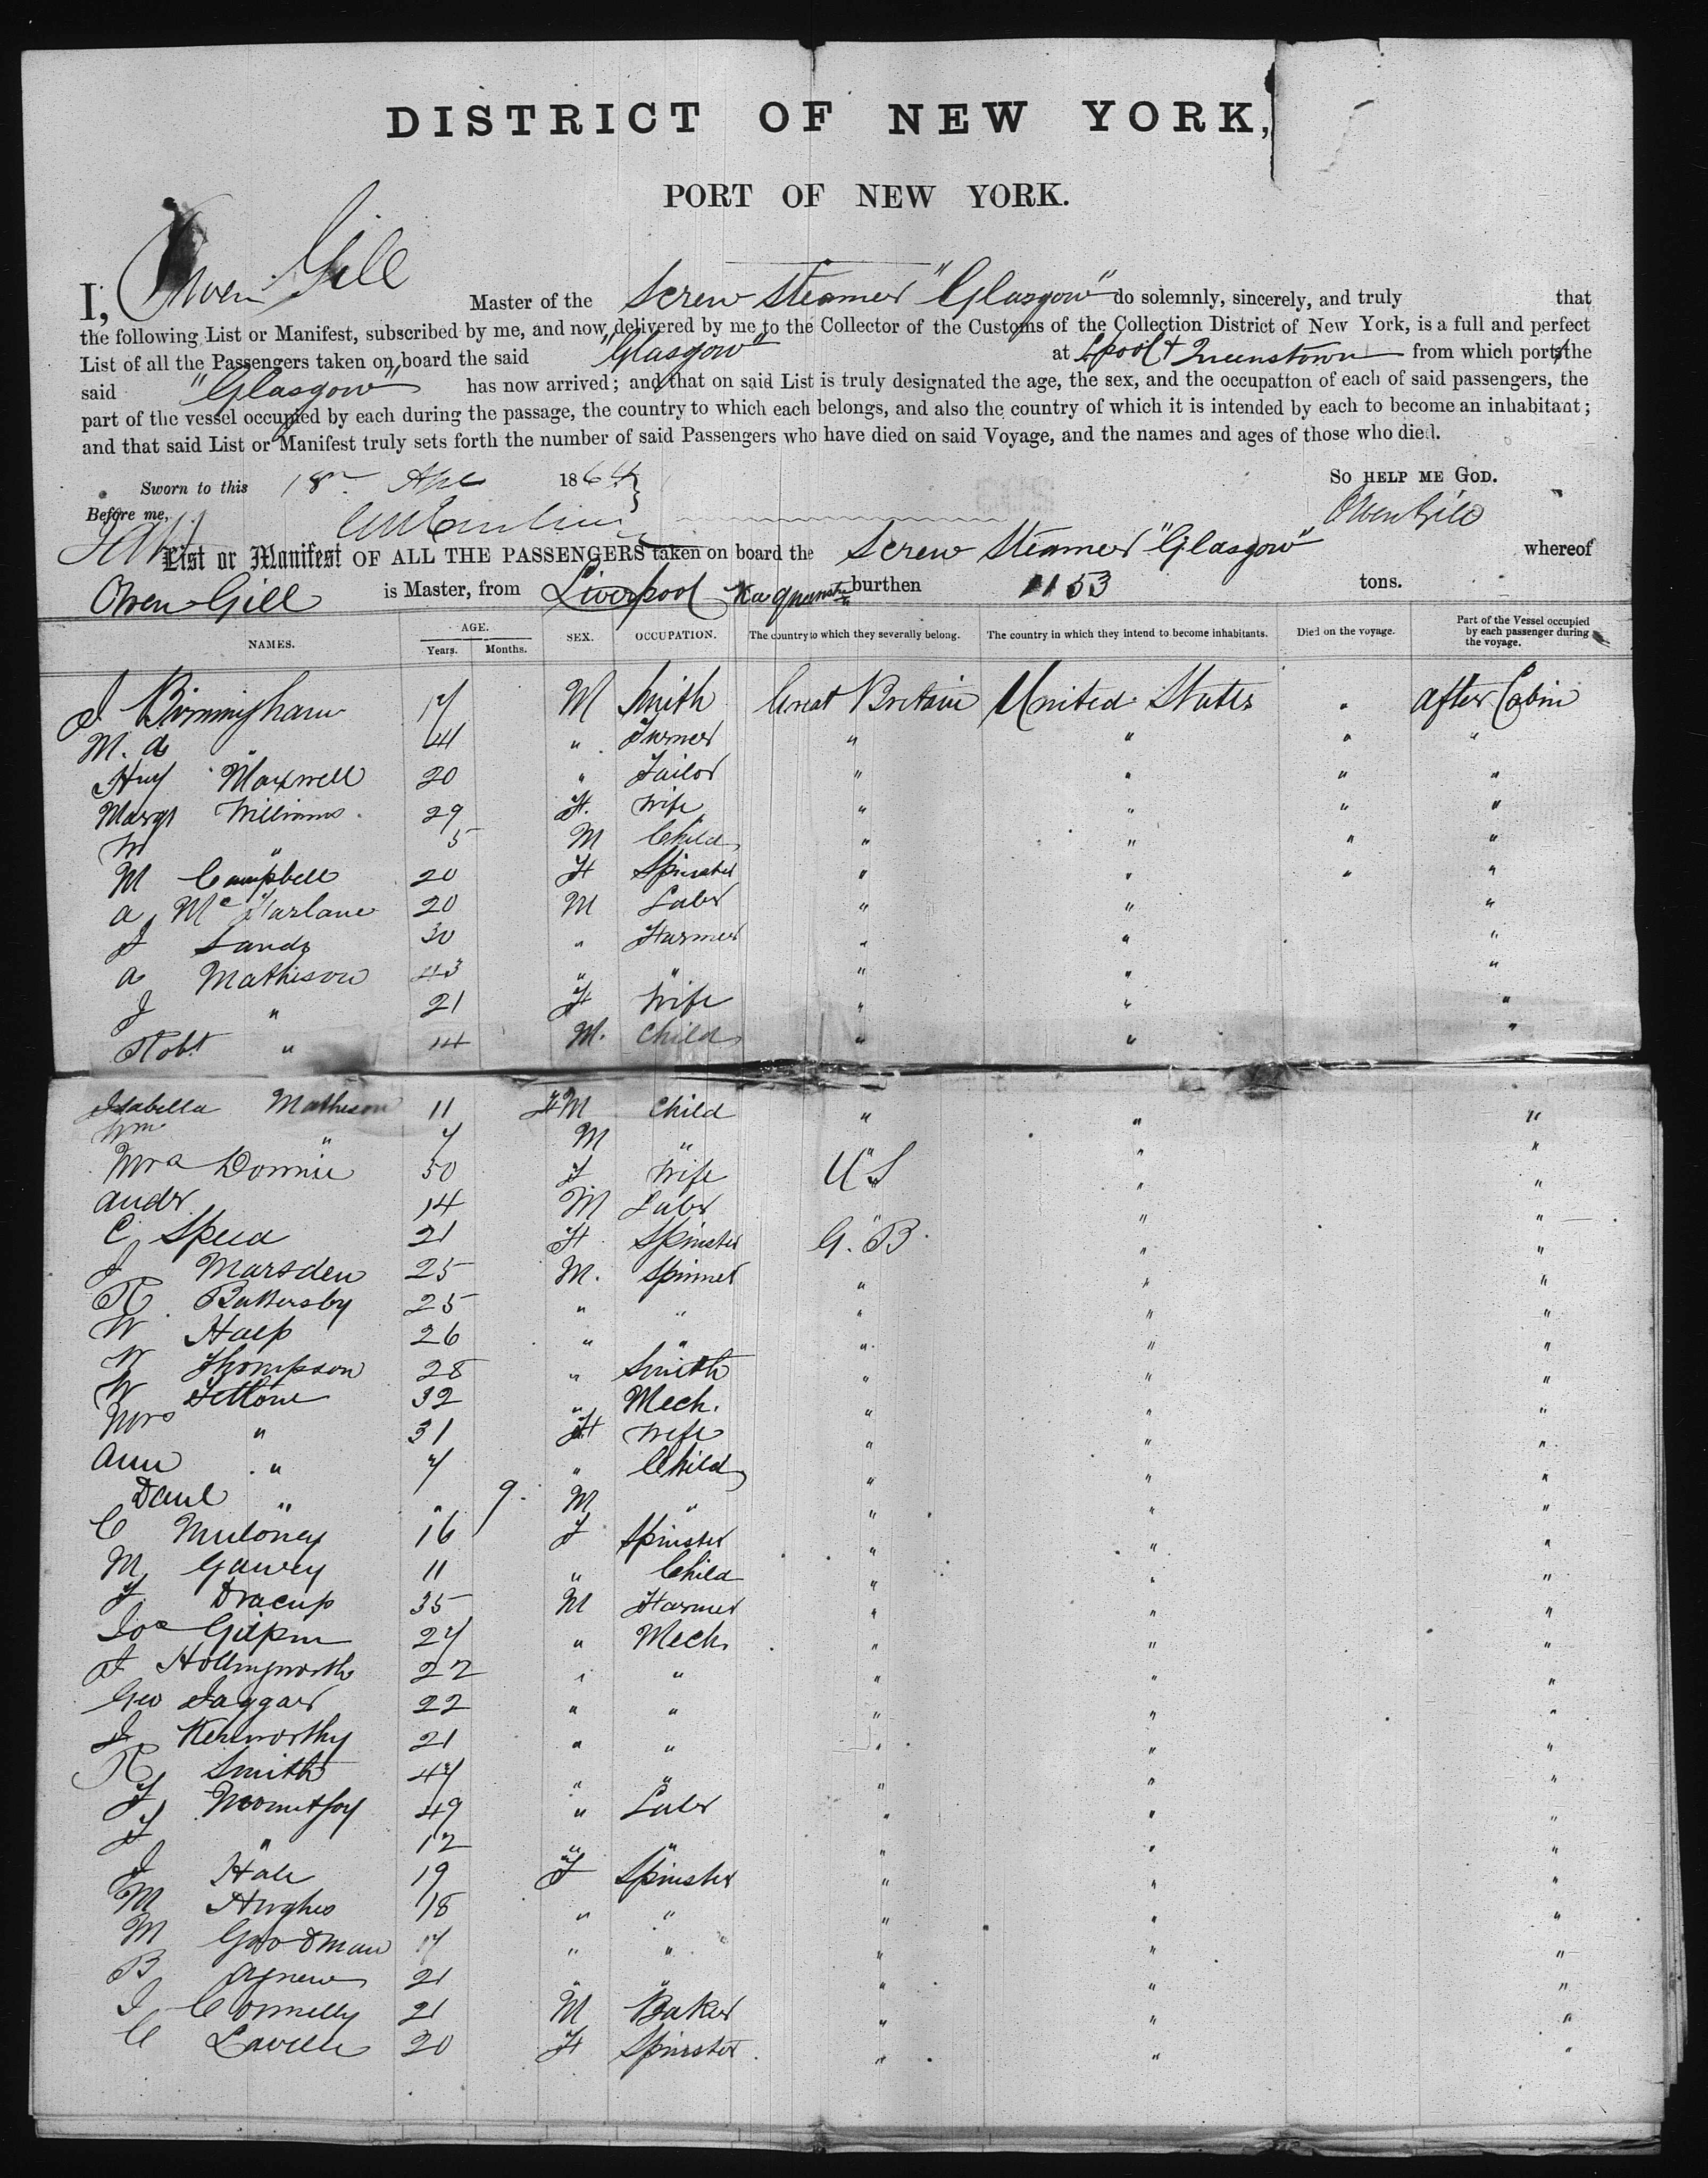 DISTRICT OF NEW YORK,
PORT OF NEW YORK.
I, Owen Gill Master of the Screw Steamer "Glasgow" do solemnly, sincerely, and truly that
the following List or Manifest, subscribed by me, and now delivered by me to the Collector of the Customs of the Collection District of New York, is a full and perfect
List of all the Passengers taken on board the said "Glasgow" at Lpool & Queenstown from which ports the
said "Glasgow" has now arrived; and that on said List is truly designated the age, the sex, and the occupation of each of said passengers, the
part of the vessel occupied by each during the passage, the country to which each belongs, and also the country of which it is intended by each to become an inhabitant;
and that said List or Manifest truly sets forth the number of said Passengers who have died on said Voyage, and the names and ages of those who died.
Sworn to this 18 Apl 1864 SO HELP ME GOD.
Before me, Owen Gill
List or Manifest OF ALL THE PASSENGERS taken on board the Screw Steamer "Glasgow" whereof
Owen Gill is Master, from Liverpool burthen 1153 tons.
NAMES. AGE. Years. Months. SEX. OCCUPATION. The country to which they severally belong. The country in which they intend to become inhabitants. Died on the voyage. Part of the Vessel occupied by each passenger during the voyage.
J Birmingham 17 M Smith Great Britain United States " After Cabin
M. " 41 " " " " "
Hny Maxwell 20 " Tailor " " " "
Margt Williams 29 F. Wife " " " "
W " 5 M Child " " " "
M Campbell 20 F Spinster " " " "
A McFarlane 20 M Labr " " "
J Sands 30 " Farmer " " "
A Mathison 43 " " " " "
J " 21 F Wife " " "
Robt " 14 M. Child " " "
Isabella Matheson 11 F M Child " " "
Wm " 7 M " " " "
Mrs Downie 50 F Wife U S " "
Andr 14 M Labr " " "
C Speed 21 F Spinster G. B. " "
J Marsden 25 M. Spinner " " "
R Battersby 25 " " " " "
W 26 " " " " "
W Thompson 28 " Smith " " "
W 32 " Mech. " " "
Mrs " 31 F Wife " " "
Ann " 7 " Child " " "
Danl " " 9. M " " " "
C Muloney 16 F Spinster " " "
M 11 " Child " " "
J Dracup 35 M Farmer " " "
Jos Gilpin 27 " Mech. " " "
J Hollingworth 22 " " " " "
Geo Jaggar 22 " " " " "
J Kenworthy 21 " " " " "
R Smith 47 " " " " "
J Mountjoy 49 " Labr " " "
J " 12 " " " " "
J Hale 19 F Spinster " " "
M Hughes 18 " " " " "
M Goodman 17 " " " " "
B Agnew 21 " " " " "
J Connelly 21 M Baker " " "
C Lavelle 20 F Spinster " " "